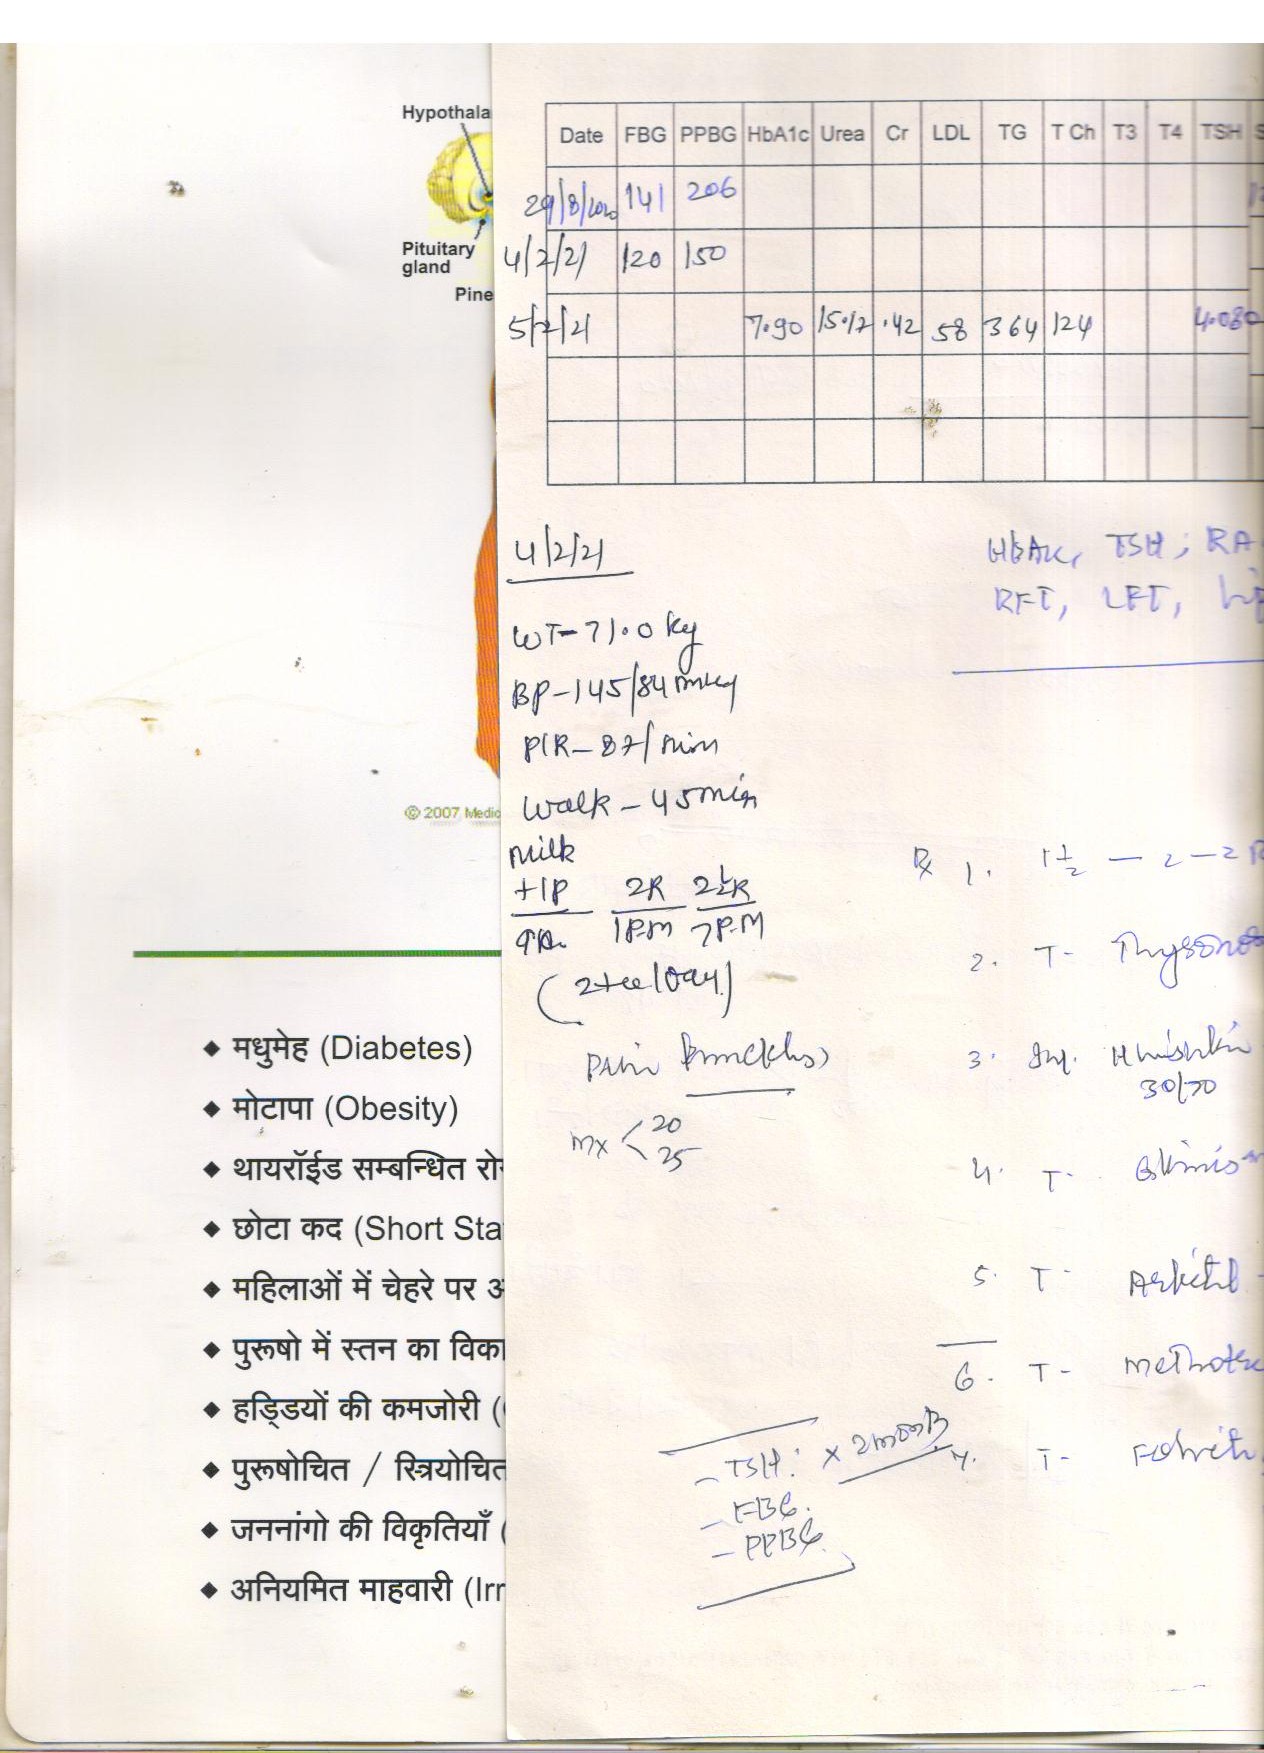 Hypothala
Pituitary
gland
Pine
© 2007 Medic
◆ मधुमेह (Diabetes)
◆ मोटापा (Obesity)
◆ थायरॉईड सम्बन्धित रो
◆ छोटा कद (Short Sta
◆ महिलाओं में चेहरे पर अ
◆ पुरूषो में स्तन का विका
◆ हड्डियों की कमजोरी (
◆ पुरूषोचित / स्त्रियोचित
◆ जननांगो की विकृतियाँ (
◆ अनियमित माहवारी (Irr
Date FBG PPBG HbA1c Urea Cr LDL TG T Ch T3 T4 TSH S
29/8/2020 141 206
4/2/21 120 150
5/2/21 7.90 15.12 .42 58 364 124 4.080
4/2/21
WT-71.0 kg
BP-145/84 mmHg
P/R-87/min
Walk-45min
Milk
+1P 2R 2½R
9A. 1P.M 7P.M
Pain
Mx < 20
25
HbA1c, TSH; RA
RFT, LFT, Lip
Rx 1. 1½ - 2 - 2
2. T- Thyrono
3. Inj. H
30/70
4. T- Glimis
5. T-
6. T- Methotre
7. T- Folvit
- TSH: x 2 month
- FBG.
- PPBG.